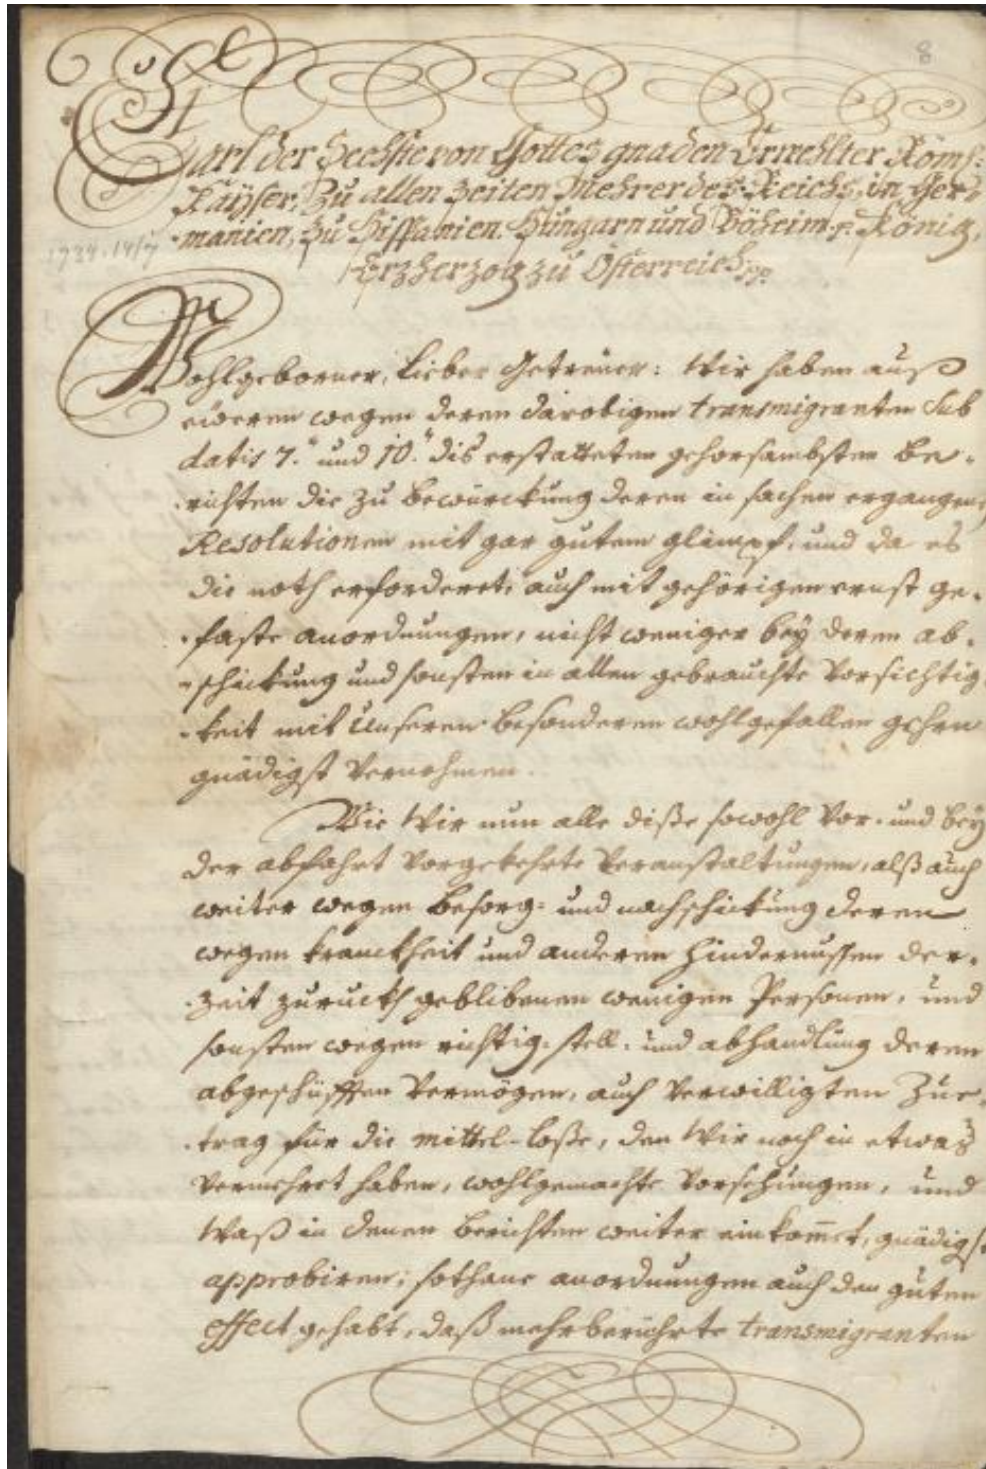 8
Carl der Sechste von Gottes gnaden Erwehlter Röms:
Kaÿser, Zu allen Zeiten Mehrer des Reichs, in Ger-
-manien, zu Hispanien, Hungarn und Böheim p. König,
1734. 14/7
Ertzherzog zu Österreich pp.
Wohlgeborner, lieber Getreüer: Wir haben auß
eüeren wegen deren darobigen transmigranten sub
datis 7.ᵗ und 10.ᵗ dis erstatteten gehorsambsten be-
-richten die zu bewürckung deren in sachen ergangenen
Resolutionen mit gar gutem glimpf, und da es
die noth erforderet, auch mit gehörigen ernst ge-
-faste anordnungen, nicht weniger beÿ deren ab-
-schickung und sonsten in allen gebrauchte Vorsichtig-
-keit mit Unseren besonderen wohlgefallen gehrn
gnädigst Vernohmen.
Wie Wir nun alle diße sowohl Vor- und beÿ
der abfahrt Vorgekehrte Veranstaltungen, alß auch
weiter wegen besorg- und nachschickung deren
wegen kranckheit und anderen hindernussen der-
-zeit zuruckh geblibenen wenigen Personen, und
sonsten wegen richtig-stell- und abhandlung deren
abgeschüfften Vermögen, auch Verwilligten Zue-
-trag für die mittel-loße, den Wir noch in etwas
Vermehret haben, wohlgemachte Vorsehungen, und
Waß in denen berichten weiter einkom̄et, gnädigst
approbiren; sothane anordnungen auch den guten
effect gehabt, daß mehrberührte transmigranten